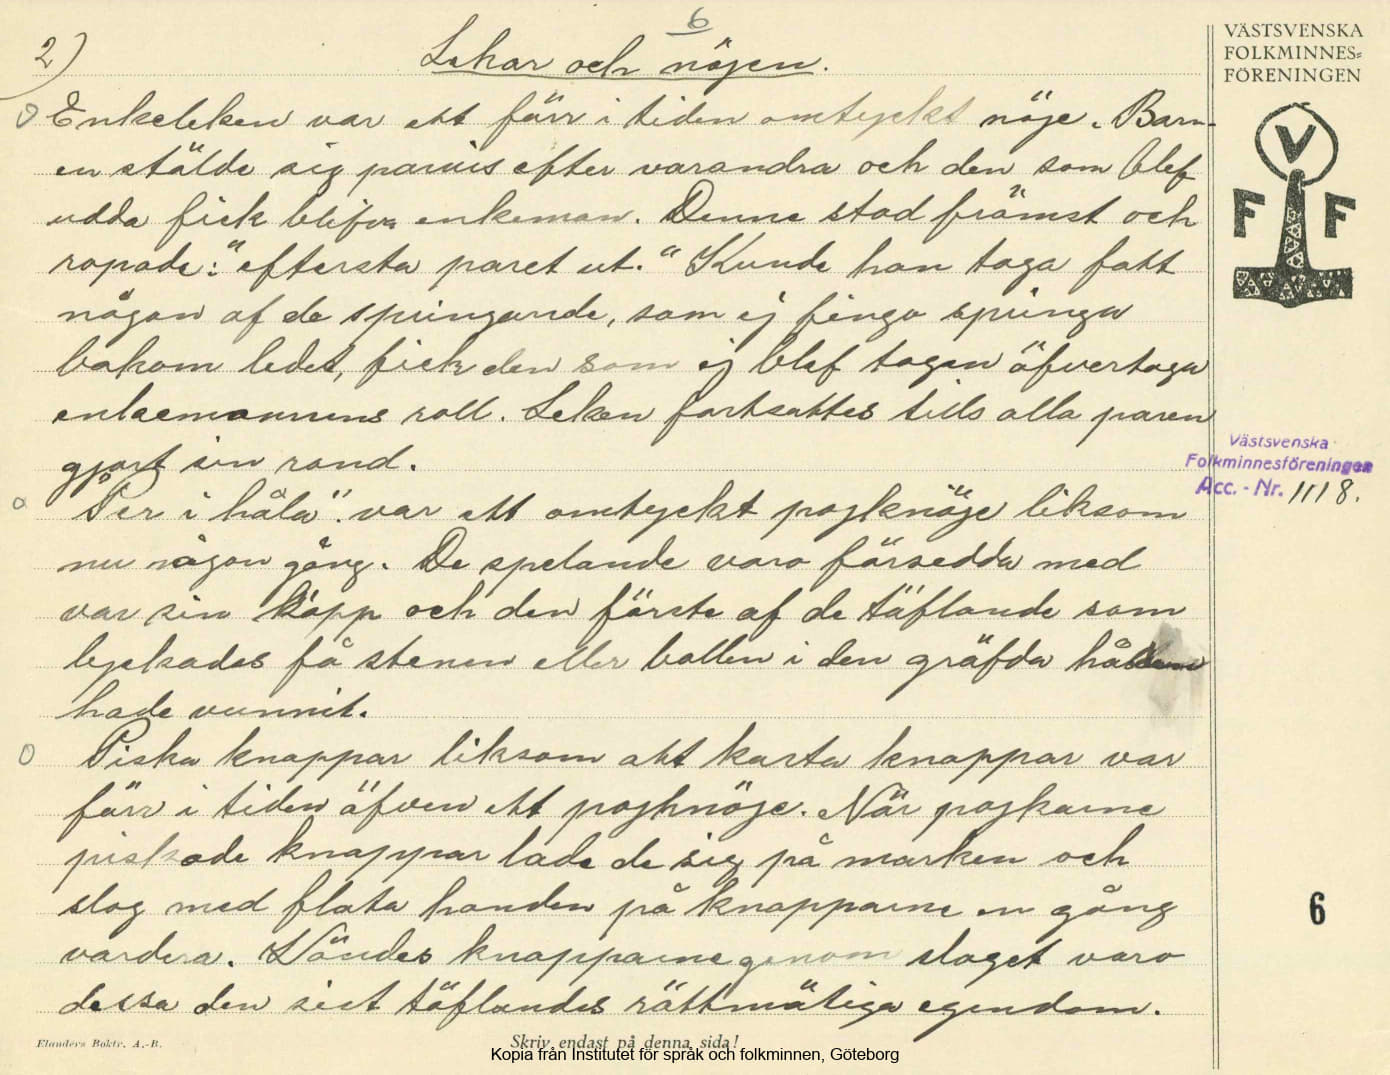 6
2)
Lekar och nöjen.
Enkeleken var ett förr i tiden omtyckt nöje. Barn-
en stälde sig parvis efter varandra och den som blef
udda fick blifva enkeman. Denne stod främst och
ropade: "eftersta paret ut." Kunde han taga fatt
någon af de springande, som ej fingo springa
bakom ledet, fick den som ej blef tagen öfvertaga
enkemannens roll. Leken fortsattes tills alla paren
gjort sin rond.
"Per i håla". var ett omtyckt pojknöje liksom
nu någon gång. De spelande voro försedda med
var sin käpp och den förste af de täflande som
lyckades få stenen eller bollen i den gräfda hålan
hade vunnit.
Piska knappar liksom att kasta knappar var
förr i tiden äfven ett pojknöje. När pojkarne
piskade knappar lade de sig på marken och
slog med flata handen på knapparne en gång
vardera. Vändes knapparne genom slaget voro
dessa den sist täflandes rättmätiga egendom.
VÄSTSVENSKA
FOLKMINNES-
FÖRENINGEN
V
F F
Västsvenska
Folkminnesföreningen
Acc. - Nr. 1118.
6
Elanders Boktr. A.-B.
Skriv endast på denna sida!
Kopia från Institutet för språk och folkminnen, Göteborg